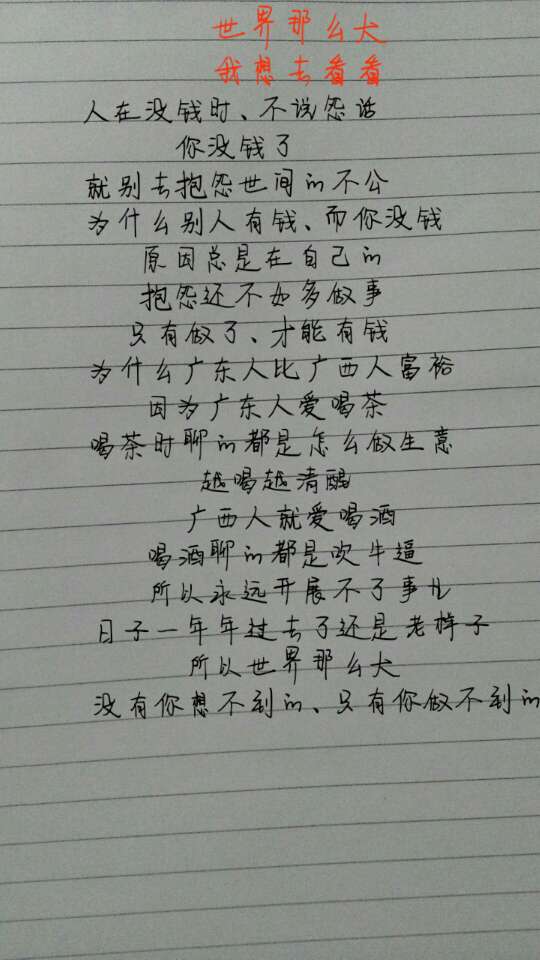 世界那么大
我想去看看
人在没钱时、不说怨话
你没钱了
就别去抱怨世间的不公
为什么别人有钱、而你没钱
原因总是在自己的
抱怨还不如多做事
只有做了、才能有钱
为什么广东人比广西人富裕
因为广东人爱喝茶
喝茶时聊的都是怎么做生意
越喝越清醒
广西人就爱喝酒
喝酒聊的都是吹牛逼
所以永远开展不了事儿
日子一年年过去了还是老样子
所以世界那么大
没有你想不到的、只有你做不到的